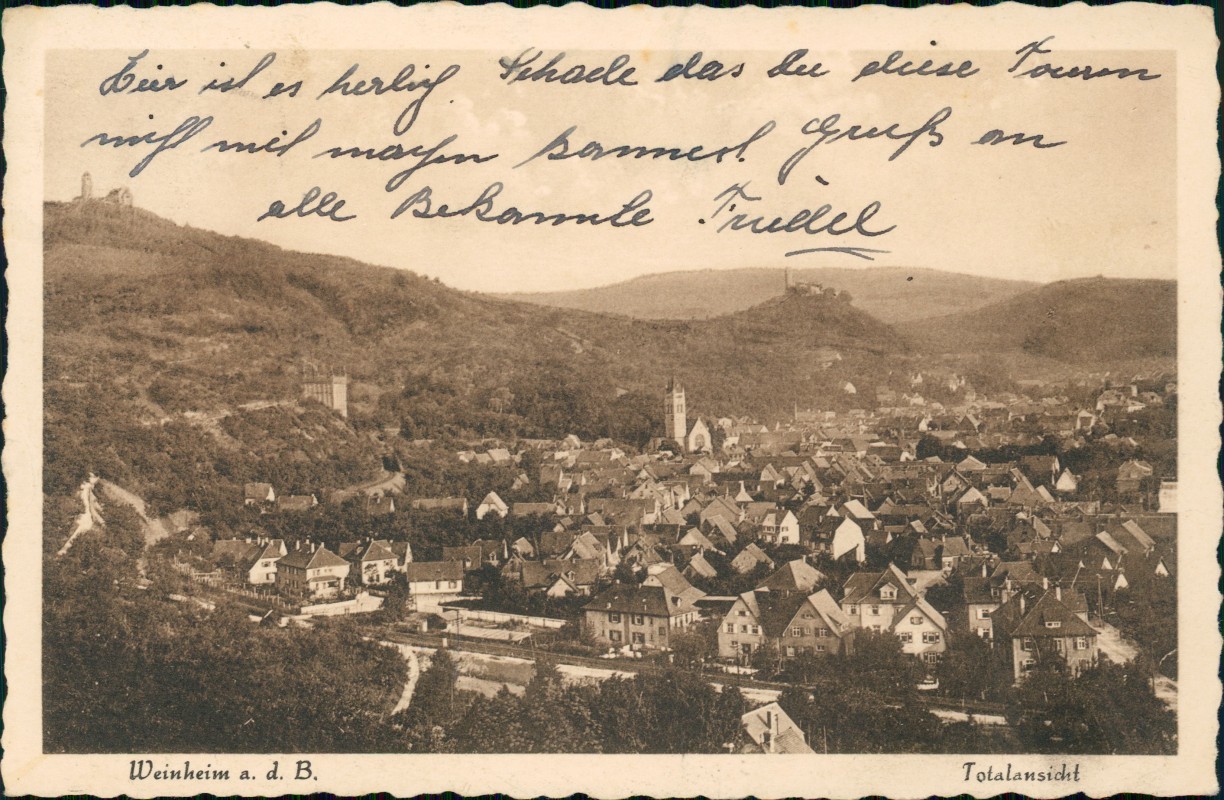 Hier ist es herlich. Schade das du diese Touren
nicht mit machen kannest. Gruß an
alle Bekannte Friedel
Weinheim a. d. B.
Totalansicht